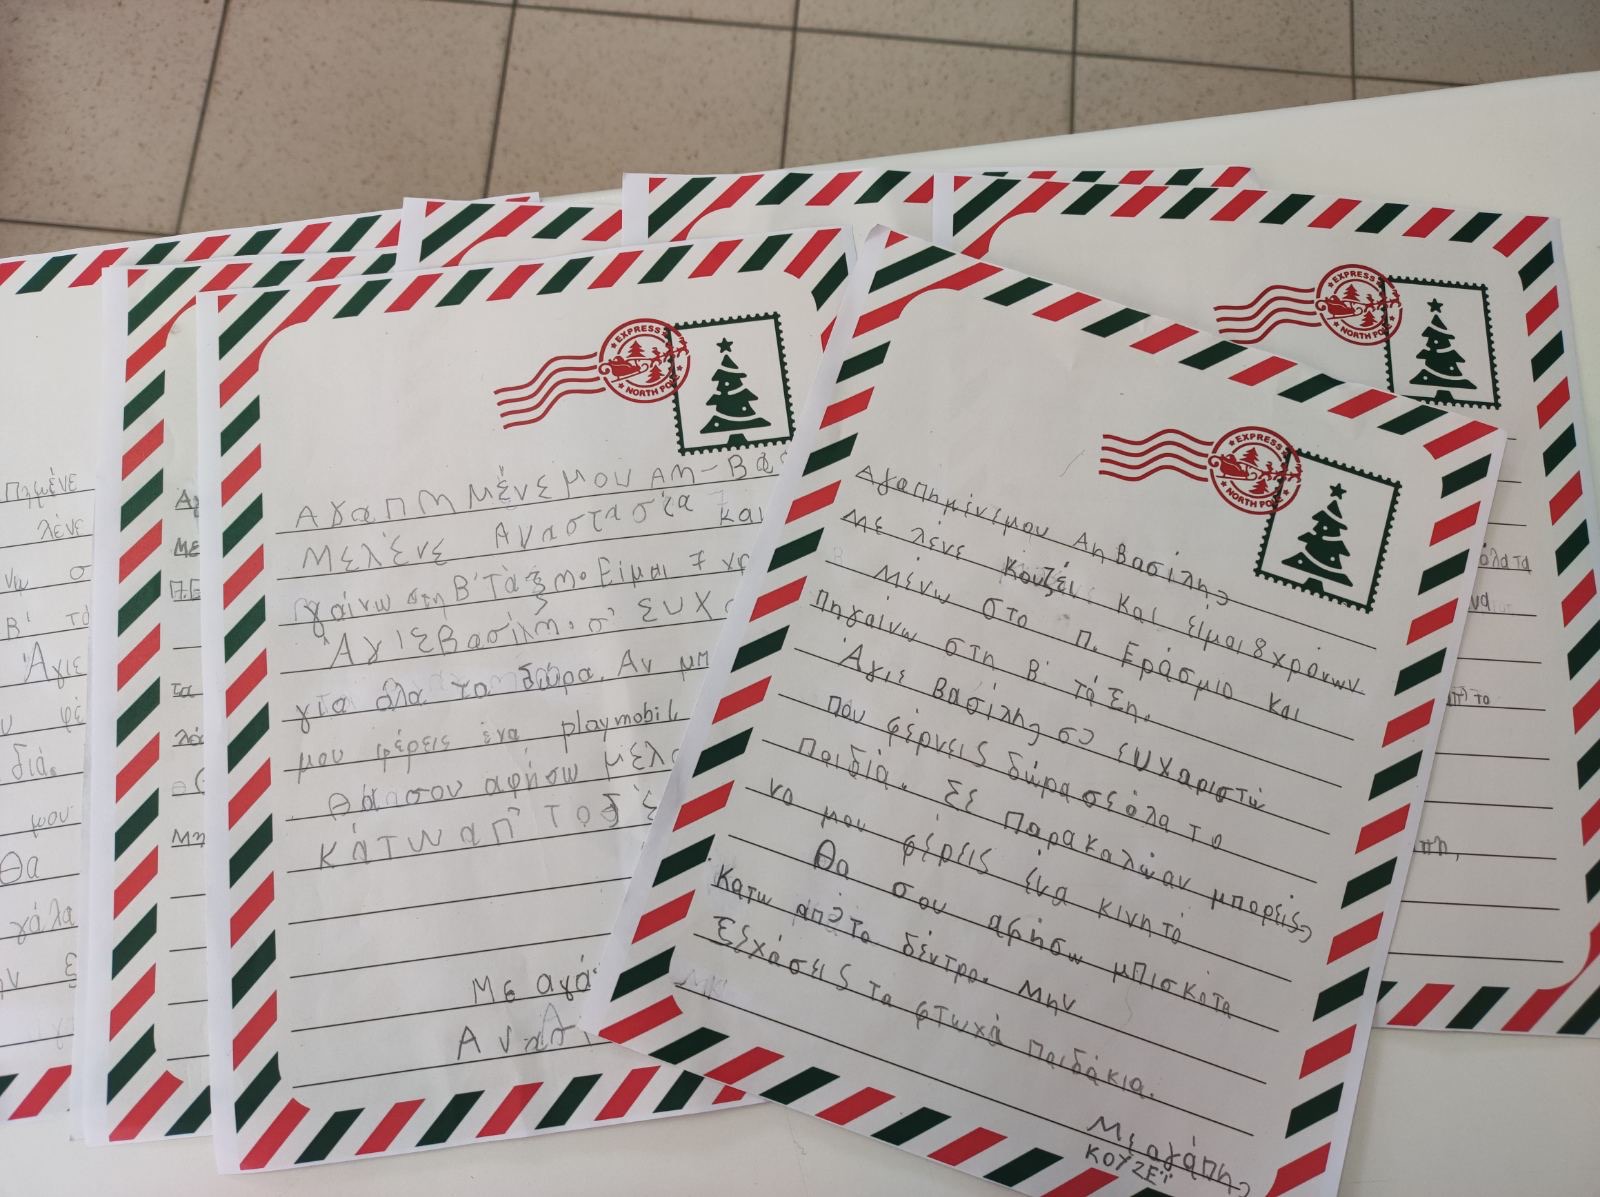 Πημένε
λένε
Β' τά
Άγιε
φέ
διά.
μου
Θα
γάλα
ΑγαΠΗΜΜένεμου ΑΗ-Βασ
Μελένε Αναστασία και
γαίνω στη Β' Τάξη. Είμαι 7 χρ
Άγιεβασίλη. σ' ευχ
για όλα τα δώρα. Αν μπ
μου φέρεις ένα playmobil,
Θασου αφήσω μελο
κάτωαπ' τοξέ
Με αγά
Ανασ
EXPRESS
NORTH POLE
Αγαπημένεμου Αη Βασίλη,
Με λένε Κουζέι και είμαι 8 χρόνων
Μένω στο Π. Εράσμιο και
πηγαίνω στη Β' τάξη.
Άγιε Βασίλης σε ευχαριστώ
που φέρνεις δώρα σε όλα τα
παιδιά. Σε Παρακαλώ αν μπορείς,
να μου φέρεις ένα κινητό
Θα σου αφήσω μπισκότα
Κατω από το δέντρο. Μην
ξεχάσεις τα φτωχά παιδάκια.
Με αγάπη,
ΚΟΥΖΕΪ
EXPRESS
NORTH POLE
EXPRESS
NORTH POLE
όλα τα